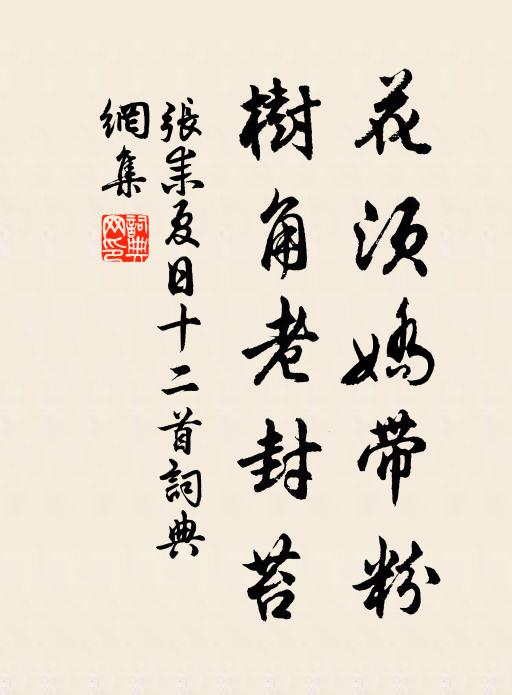 花須嬌帶粉
樹角老封苔
張耒夏日十二首詞典
網集
詞典
网印